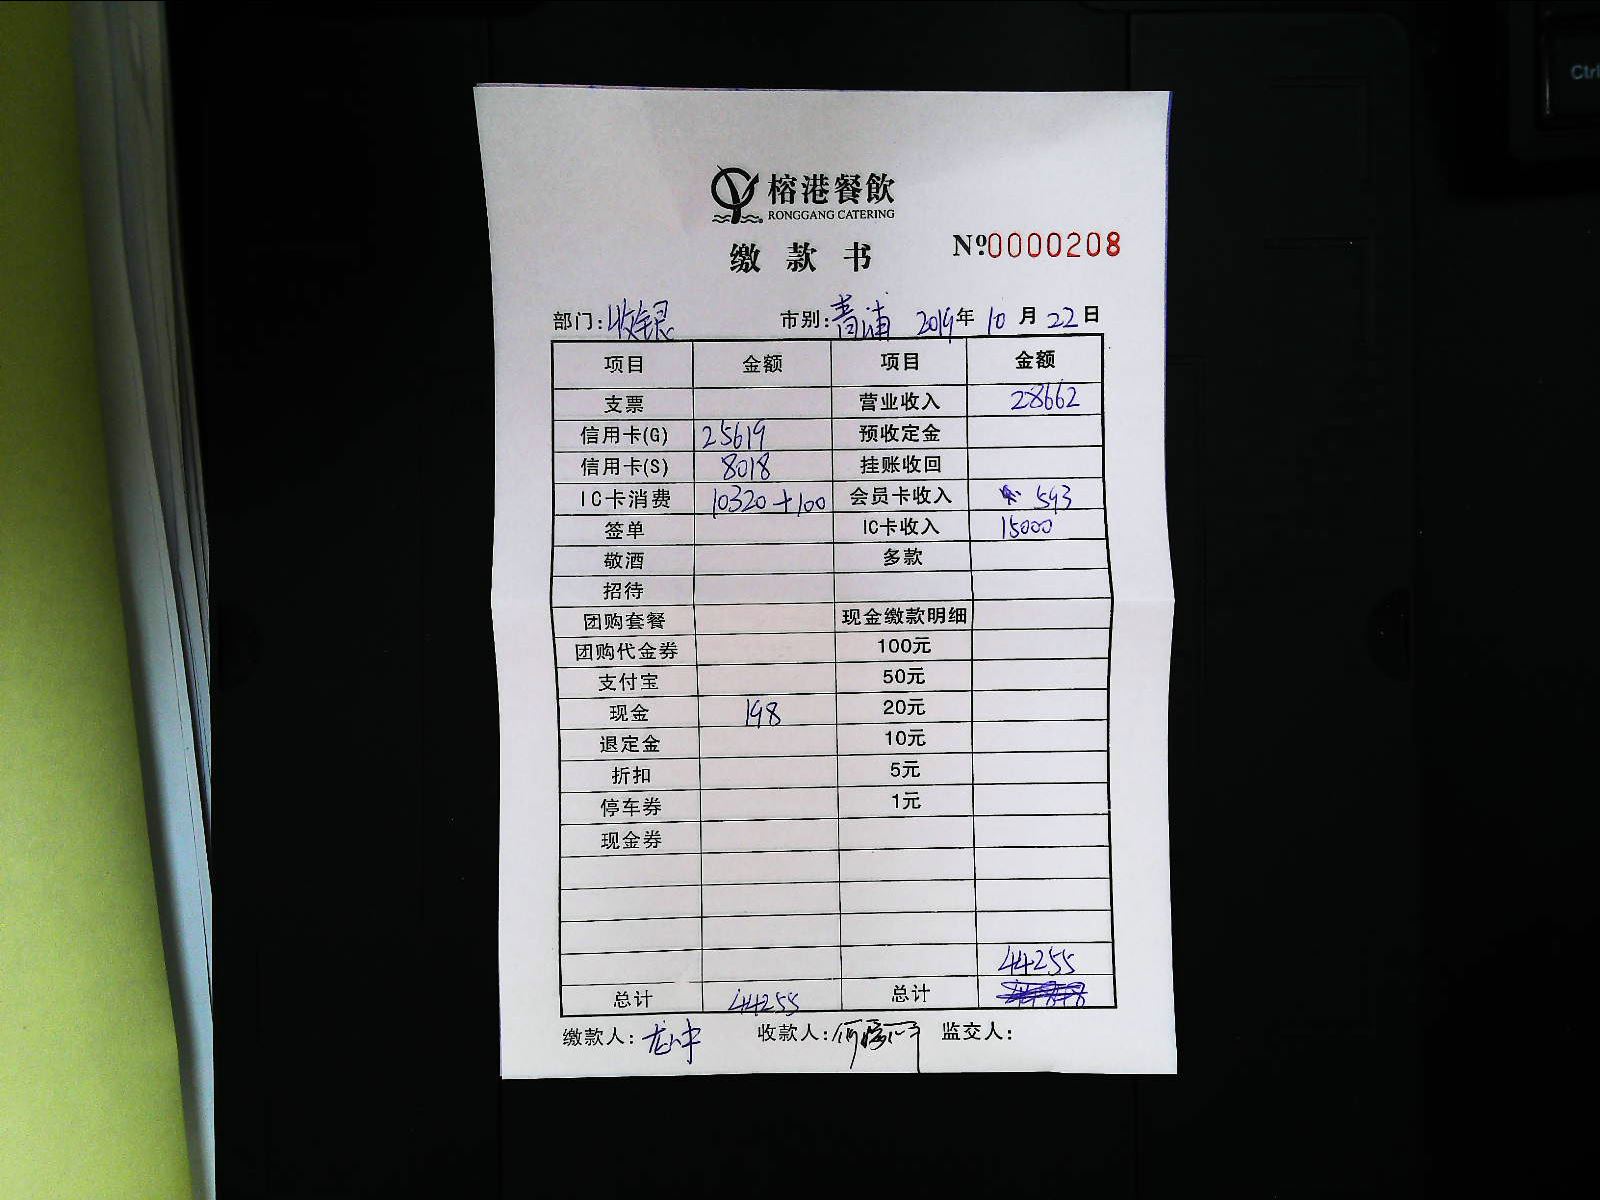 Ctrl
榕港餐飲
RONGGANG CATERING
缴款书
№0000208
部门:收银 市别:青浦 2019年10月22日
项目 金额 项目 金额
支票 营业收入 28662
信用卡(G) 25619 预收定金
信用卡(S) 8018 挂账收回
IC卡消费 10320+100 会员卡收入 593
签单 IC卡收入 15000
敬酒 多款
招待
团购套餐 现金缴款明细
团购代金券 100元
支付宝 50元
现金 198 20元
退定金 10元
折扣 5元
停车券 1元
现金券
44255
总计 44255 总计
缴款人: 收款人: 监交人: